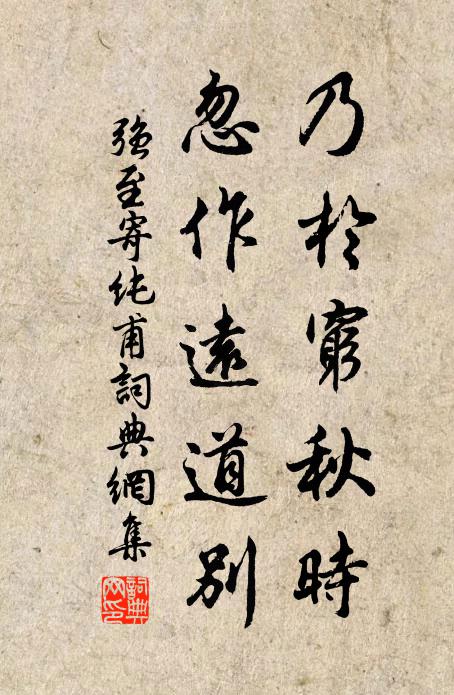 乃於窮秋時
忽作遠道別
強至寄純甫詞典網集
詞典网印